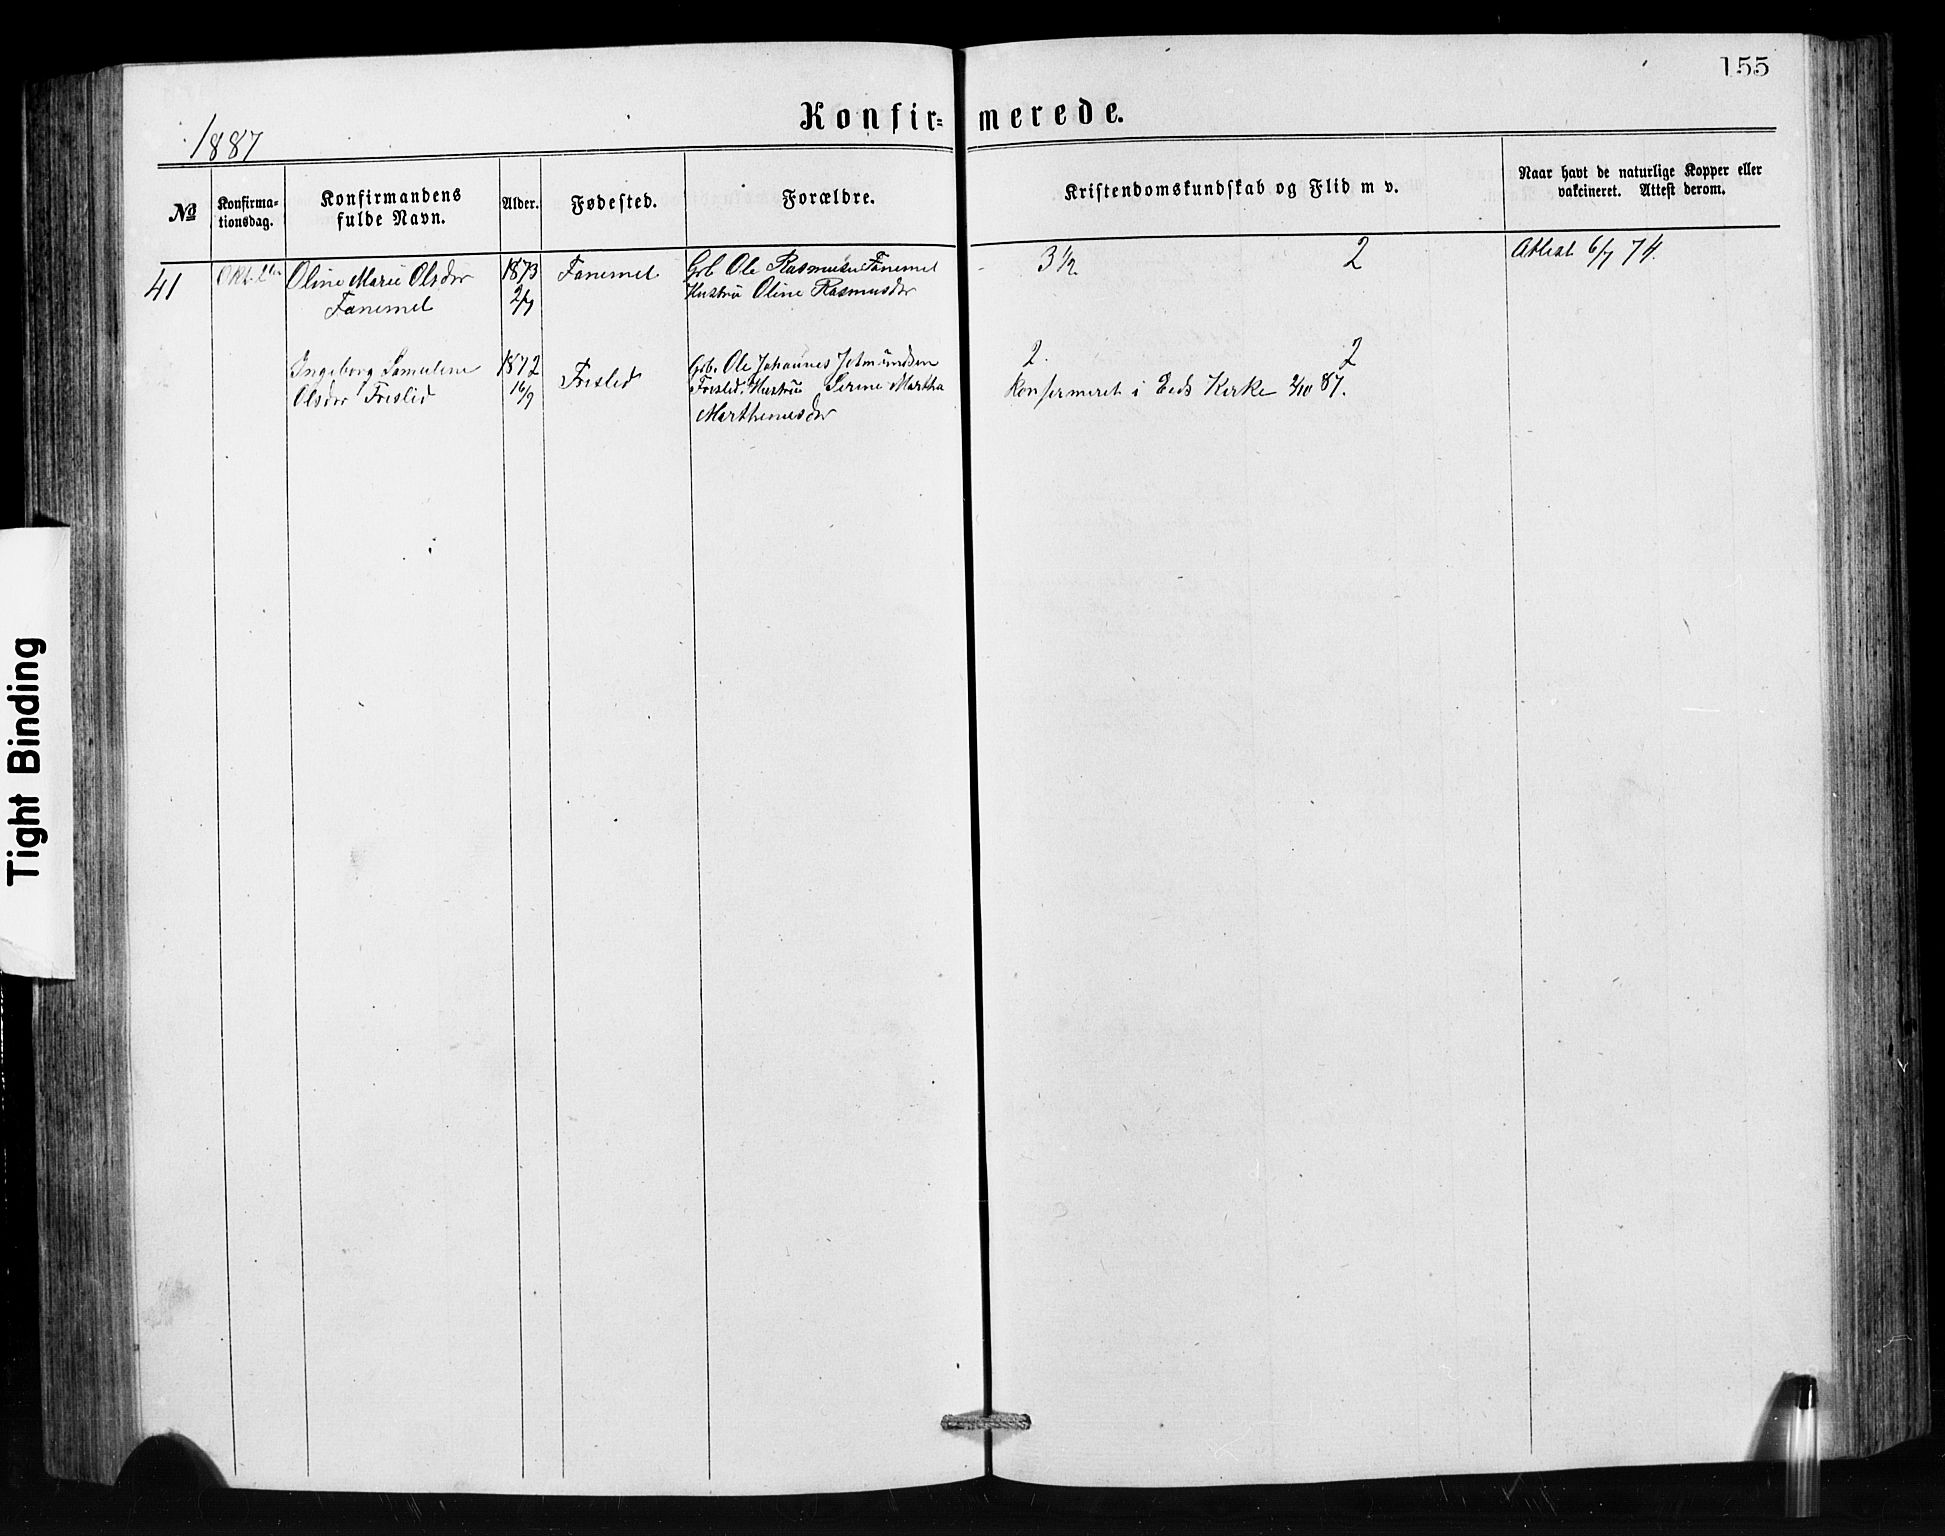 155
Konfir- merede.
1887
No
Konfirma-
tionsdag.
Konfirmandens
fulde Navn.
Alder.
Fødested.
Forældre.
Kristendomskundskab og Flid m v.
Naar havt de naturlige Kopper eller
vakcineret. Attest derom.
41
Oline Marie Olsdr
Fanemel
1873
2/9
Fanemel
Grb Ole Rasmusen Fanemel
Hustru Oline Rasmusdr
3 1/2
2
Attest 6/7 74.
Ingeborg Samuline
Olsdr Frislid
1872
16/9
Frislid
Grb. Ole Johannes
Frislid, Hustru Serine Martha
Marthinusdr
2.
2
Konfirmeret i Eids Kirke 2/10 87.
Tight Binding